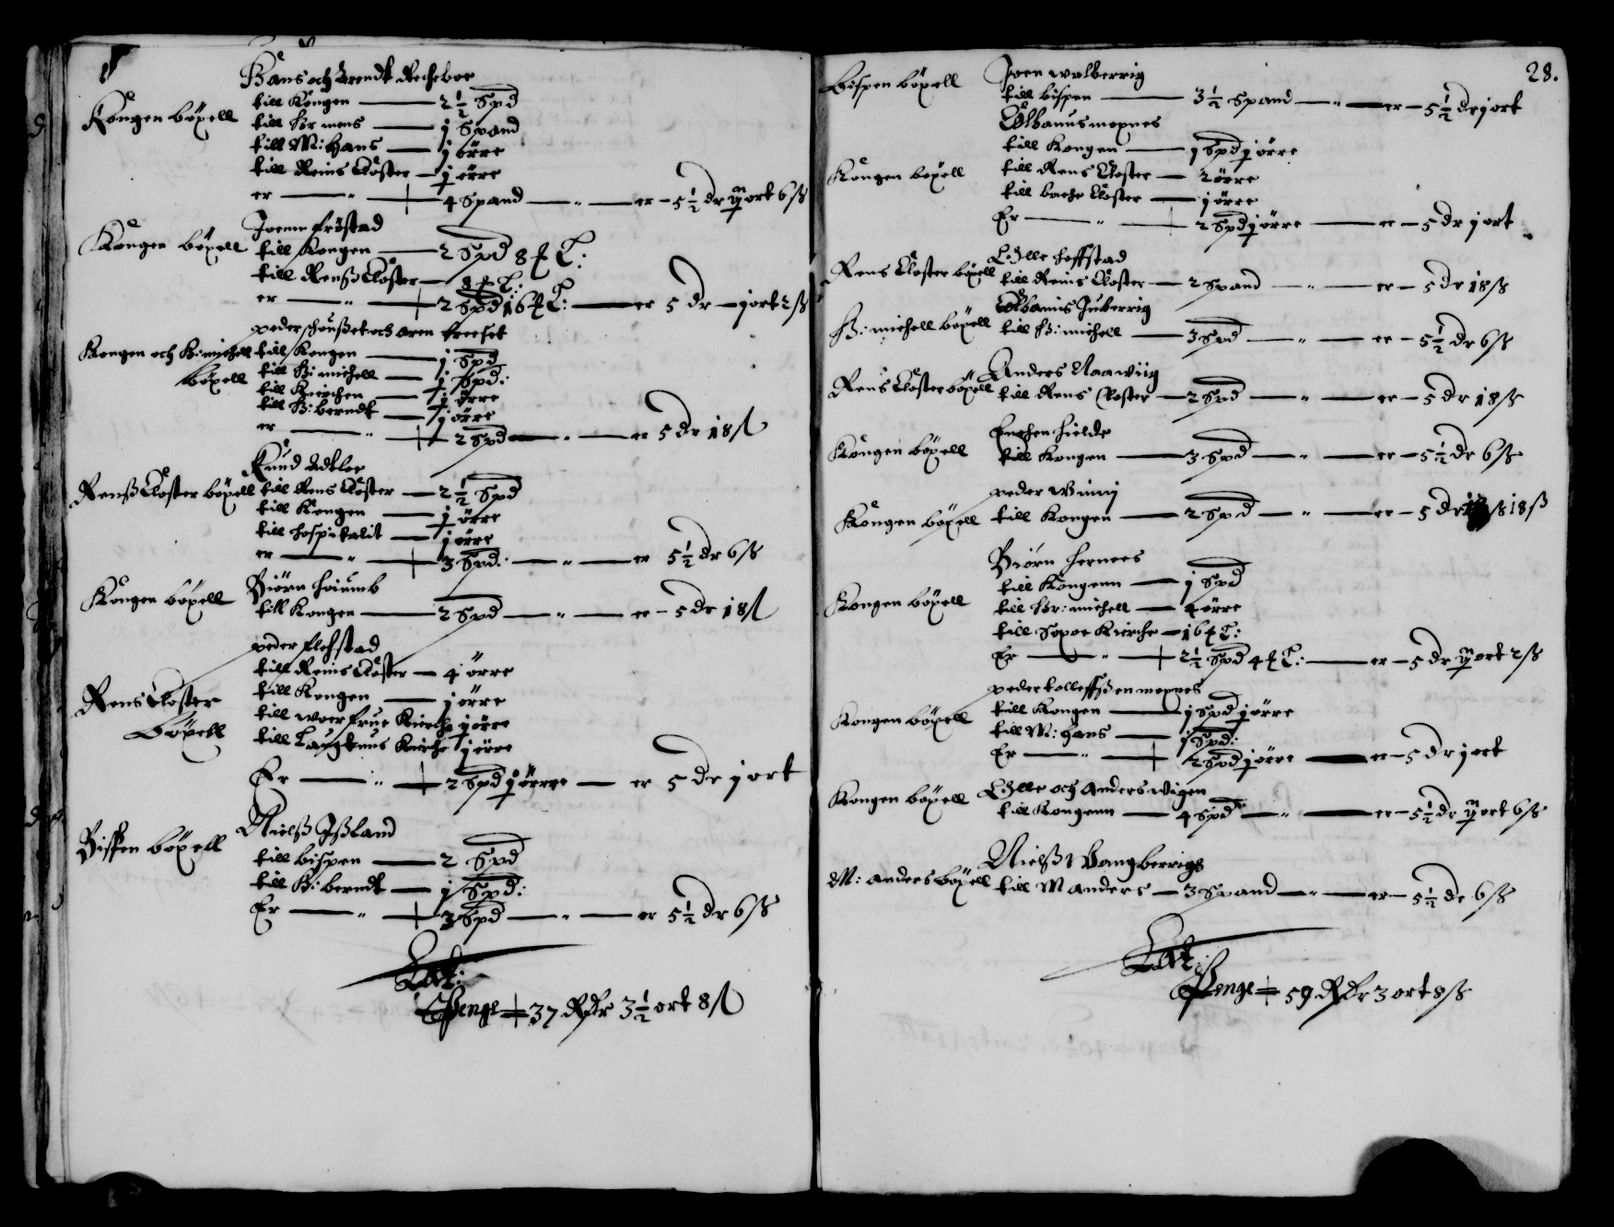 Hans och Arendt Recheboe
Kongen böxell
till Kongen — 2½ Spd
till hr mens — j Spand
till M: Hans — j örre
till Reins Closter — j örre
er — " — 4 Spand — " — er — 5½ dr ort 6 ß
Joenn fröstad
Kongen böxell
till Kongen — 2 Spd 8
till Renß Closter — 8
er — " — 2 Spd 16 — er 5 dr — j ort 2 ß
Kongen och H: michell böxell
till Kongen — j Spd
till H: michell — j Spd:
till Kirchen — j örre
till H: berendt — j örre
er — " — 2 Spd — " — er 5 dr 18 ß
Knud
Renß Closter böxell
till Rens Closter — 2½ Spd
till Kongen — j örre
till hospitalit — j örre
er — " — 3 Spd: — " — er 5½ dr 6 ß
Biörn
Kongen böxell
till Kongen — 2 Spd — " — er — 5 dr 18 ß
peder flehstad
Rens Closter böxell
till Reins Closter — 4 örre
till Kongen — j örre
till woer frue Kirche j örre
till Kirche j örre
Er — " — 2 Spd j örre — er 5 dr j ort
Nielß Ißland
Bispen böxell
till bispen — 2 Spd
till H: berendt — j Spd:
Er — " — 3 Spd — " — er 5½ dr 6 ß
Lat:
Penge 37 Rdr 3½ ort 8 ß
28.
Joen walberrig
bispen böxell
till bispen — 3½ Spand — " — er — 5½ dr j ort
Kongen böxell
till Kongen — 1 Spd j örre
till Rens Closter — 2 örre
till bache Closter — j örre
Er — " — 2 Spd j örre — er — 5 dr j ort
Olle hoffstad
Rens Closter böxell
till Reins Closter — 2 Spand — " — er — 5 dr 18 ß
H: michell böxell
till H: michell — 3 Spd — " — er — 5½ dr 6 ß
Anders Aaawiig
Rens Closter böxell
till Rens Closter — 2 Spd — " — er — 5 dr 18 ß
Kongen böxell
till Kongen — 3 Spd — " — er — 5½ dr 6 ß
peder
Kongen böxell
till Kongen — 2 Spd — " — er — 5 dr 18 ß
Biörn hernees
Kongen böxell
till Kongenn — j Spd
till Hr: michell — 4 örre
till Kirche — 16
Er — " — 2½ Spd 4 — er — 5 dr ort 2 ß
peder mexnes
Kongen böxell
till Kongen — j Spd j örre
till M: Hans — j Spd:
Er — " — 2 Spd j örre — er — 5 dr j ort
Olle och Anders wigen
Kongen böxell
till Kongenn — 4 Spd — " — er — 5½ dr ort 6 ß
M: anders böxell
till M anders — 3 Spand — " — er — 5½ dr 6 ß
Lat:
Penge 59 Rdr 3 ort 8 ß